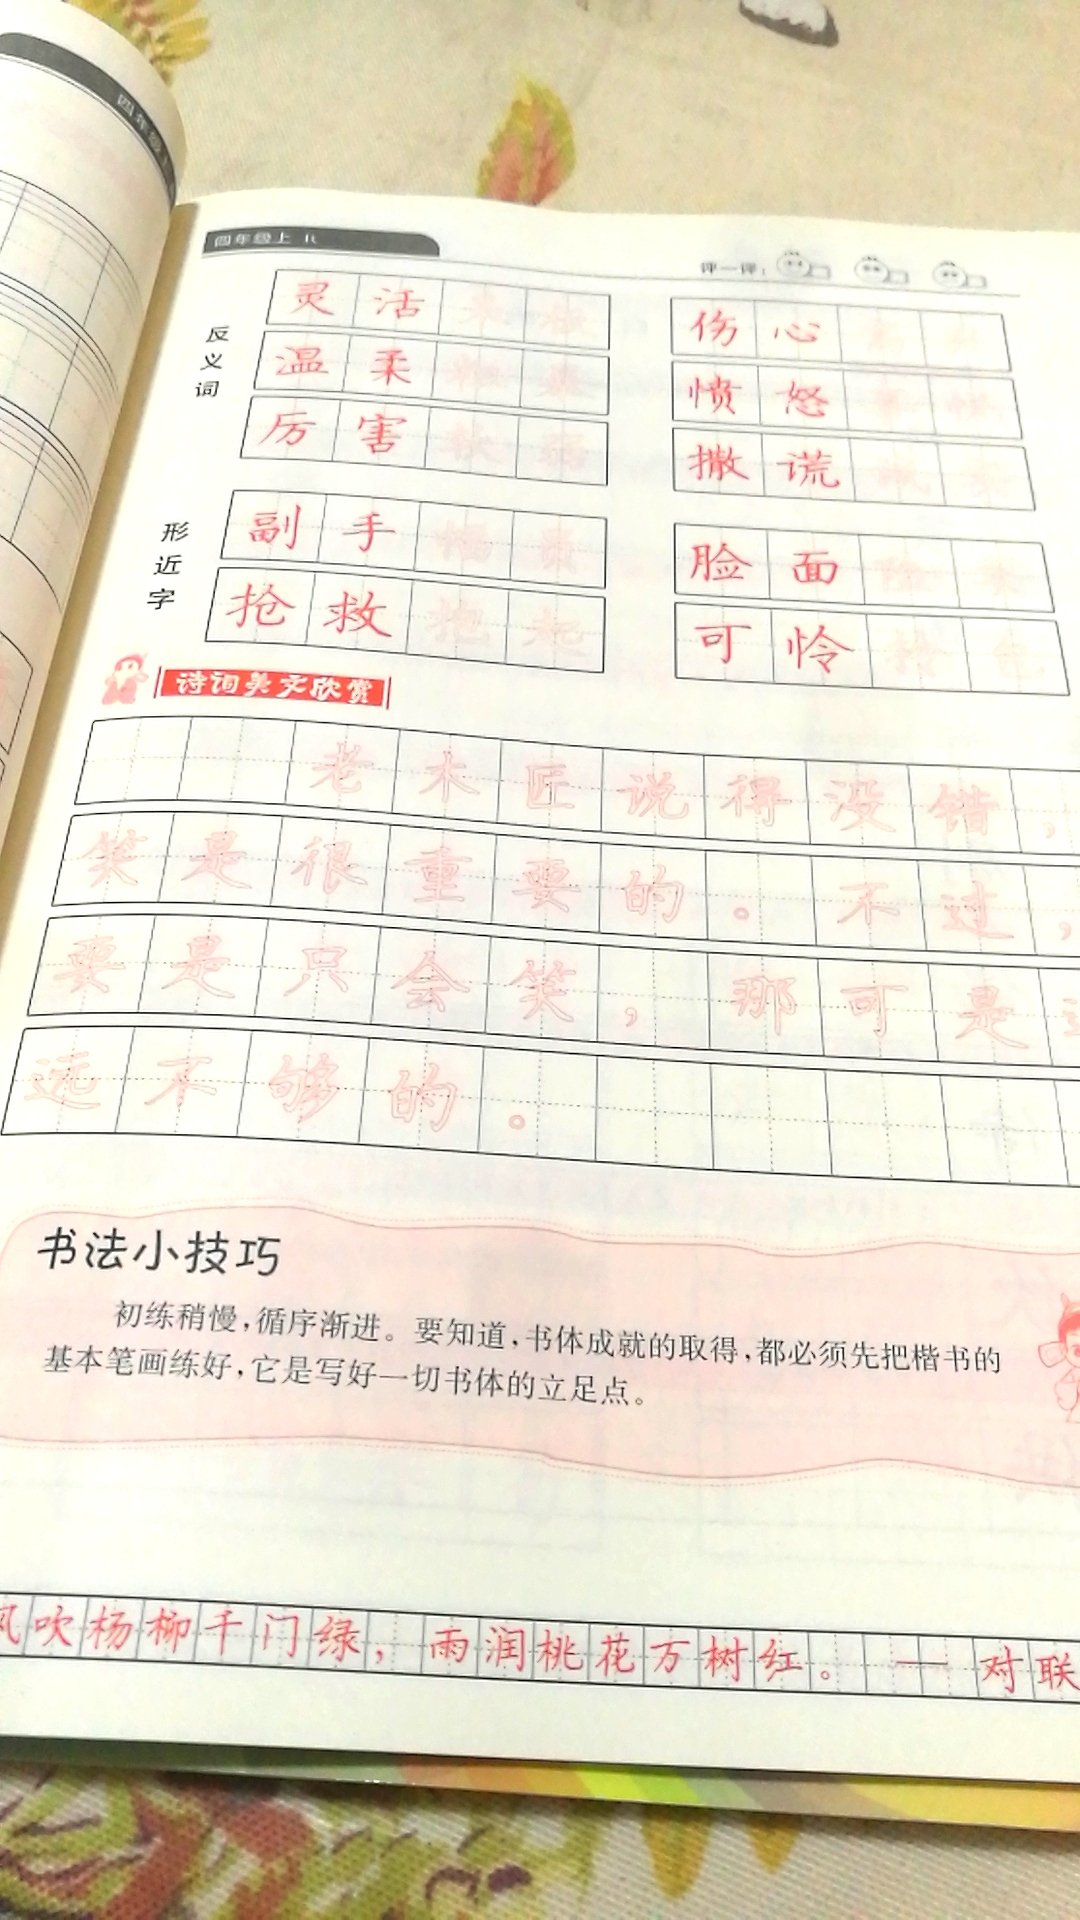 四年级上 R
评一评：
反义词
灵活
伤心
温柔
愤怒
厉害 软弱
撒谎
形近字
副手
脸面
抢救 抱起
可怜
诗词美文欣赏
老木匠说得没错，
笑是很重要的。不过，
要是只会笑，那可是
远不够的。
书法小技巧
初练稍慢，循序渐进。要知道，书体成就的取得，都必须先把楷书的
基本笔画练好，它是写好一切书体的立足点。
风吹杨柳千门绿，雨润桃花万树红。——对联